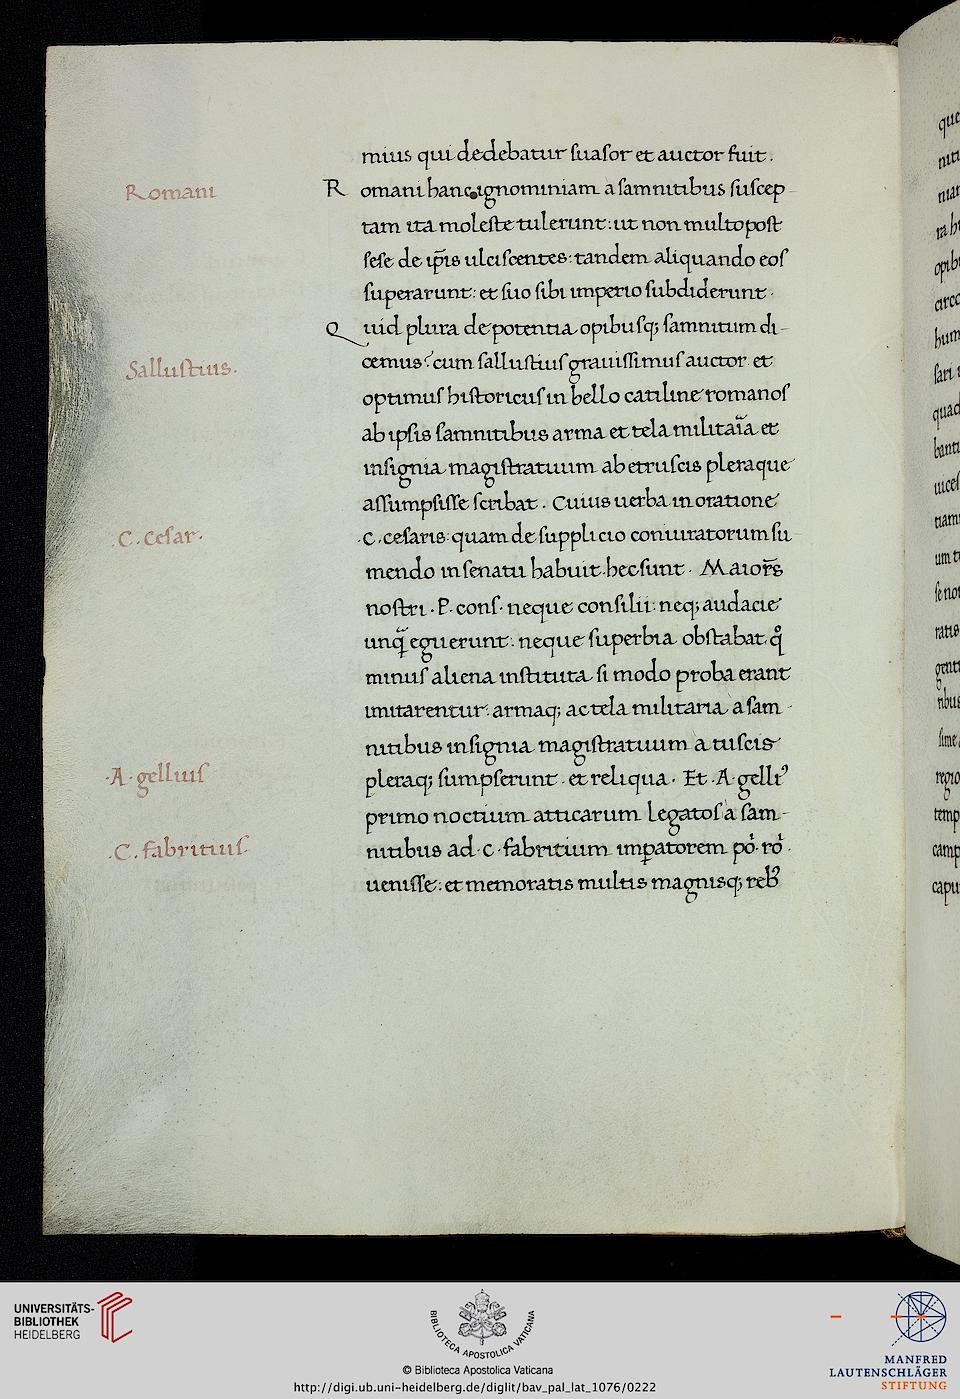 mius qui dedebatur suasor et auctor fuit.
Romani
Romani hanc ignominiam a samnitibus suscep
tam ita moleste tulerunt: ut non multo post
sese de ip̅is ulciscentes: tandem aliquando eos
superarunt: et suo sibi imperio subdiderunt.
Quid plura de potentia opibusq; samnitum di-
Sallustius.
cemus? cum sallustius grauissimus auctor et
optimus historicus in bello catiline romanos
ab ipsis samnitibus arma et tela militaia et
insignia magistratuum ab etruscis pleraque
assumpsisse scribat. Cuius uerba in oratione
C. Cesar.
.C. cesaris quam de supplicio coniuratorum su
mendo in senatu habuit hec sunt. Maior̅s
nostri .P. cons. neque consilii: neq; audacie
unq̅ eguerunt: neque superbia obstabat. qͦ
minus aliena instituta si modo proba erant
imitarentur. armaq; ac tela militaria a sam-
nitibus insignia magistratuum a tuscis
.A. gellius
pleraq; sumpserunt. et reliqua. Et .A. gelliꝰ
primo noctium atticarum legatos a sam-
.C. fabritius.
nitibus ad .c. fabritium imꝑatorem po̍. ro̍.
uenisse: et memoratis multis magnisq; rebꝰ
que
UNIVERSITÄTS-
BIBLIOTHEK
HEIDELBERG
BIBLIOTECA APOSTOLICA VATICANA
© Biblioteca Apostolica Vaticana
http://digi.ub.uni-heidelberg.de/diglit/bav_pal_lat_1076/0222
MANFRED
LAUTENSCHLÄGER
STIFTUNG